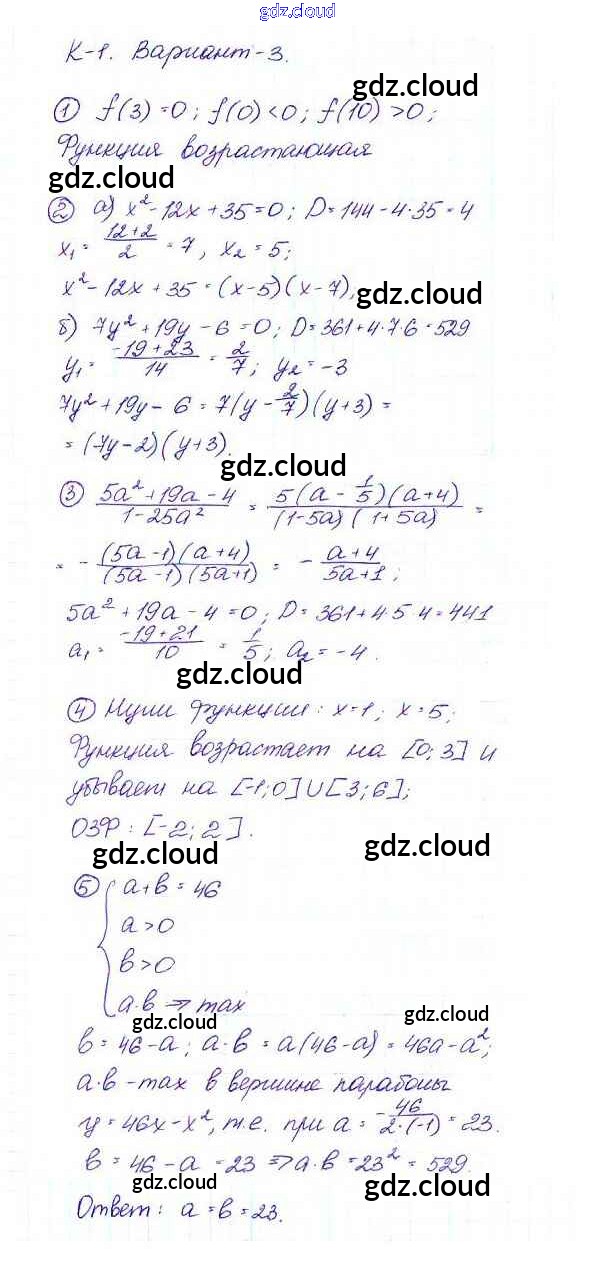 gdz.cloud
К-1. Вариант-3.
gdz.cloud
① f(3)=0; f(0)<0; f(10)>0;
Функция возрастающая
gdz.cloud
② а) x²-12x+35=0; D=144-4·35=4
x₁= (12+2)/2 =7, x₂=5;
x²-12x+35=(x-5)(x-7),
gdz.cloud
б) 7y²+19y-6=0; D=361+4·7·6=529
y₁= (-19+23)/14 = 2/7; y₂=-3
7y²+19y-6=7(y-2/7)(y+3)=
=(7y-2)(y+3).
gdz.cloud
③ (5a²+19a-4)/(1-25a²) = 5(a-1/5)(a+4)/((1-5a)(1+5a)) =
= - (5a-1)(a+4)/((5a-1)(5a+1)) = - (a+4)/(5a+1);
5a²+19a-4=0; D=361+4·5·4=441
a₁= (-19+21)/10 = 1/5; a₂=-4.
gdz.cloud
④ Нули функции: x=1; x=5;
Функция возрастает на [0;3] и
убывает на [-1;0]∪[3;6];
ОЗФ: [-2;2].
gdz.cloud
gdz.cloud
⑤ { a+b=46
a>0
b>0
a·b ⇒ max
gdz.cloud
gdz.cloud
b=46-a; a·b=a(46-a)=46a-a²;
a·b-max в вершине параболы
y=46x-x², т.е. при a= -46/(2·(-1)) =23.
gdz.cloud
gdz.cloud
b=46-a=23⇒a·b=23²=529.
gdz.cloud
gdz.cloud
Ответ: a=b=23.